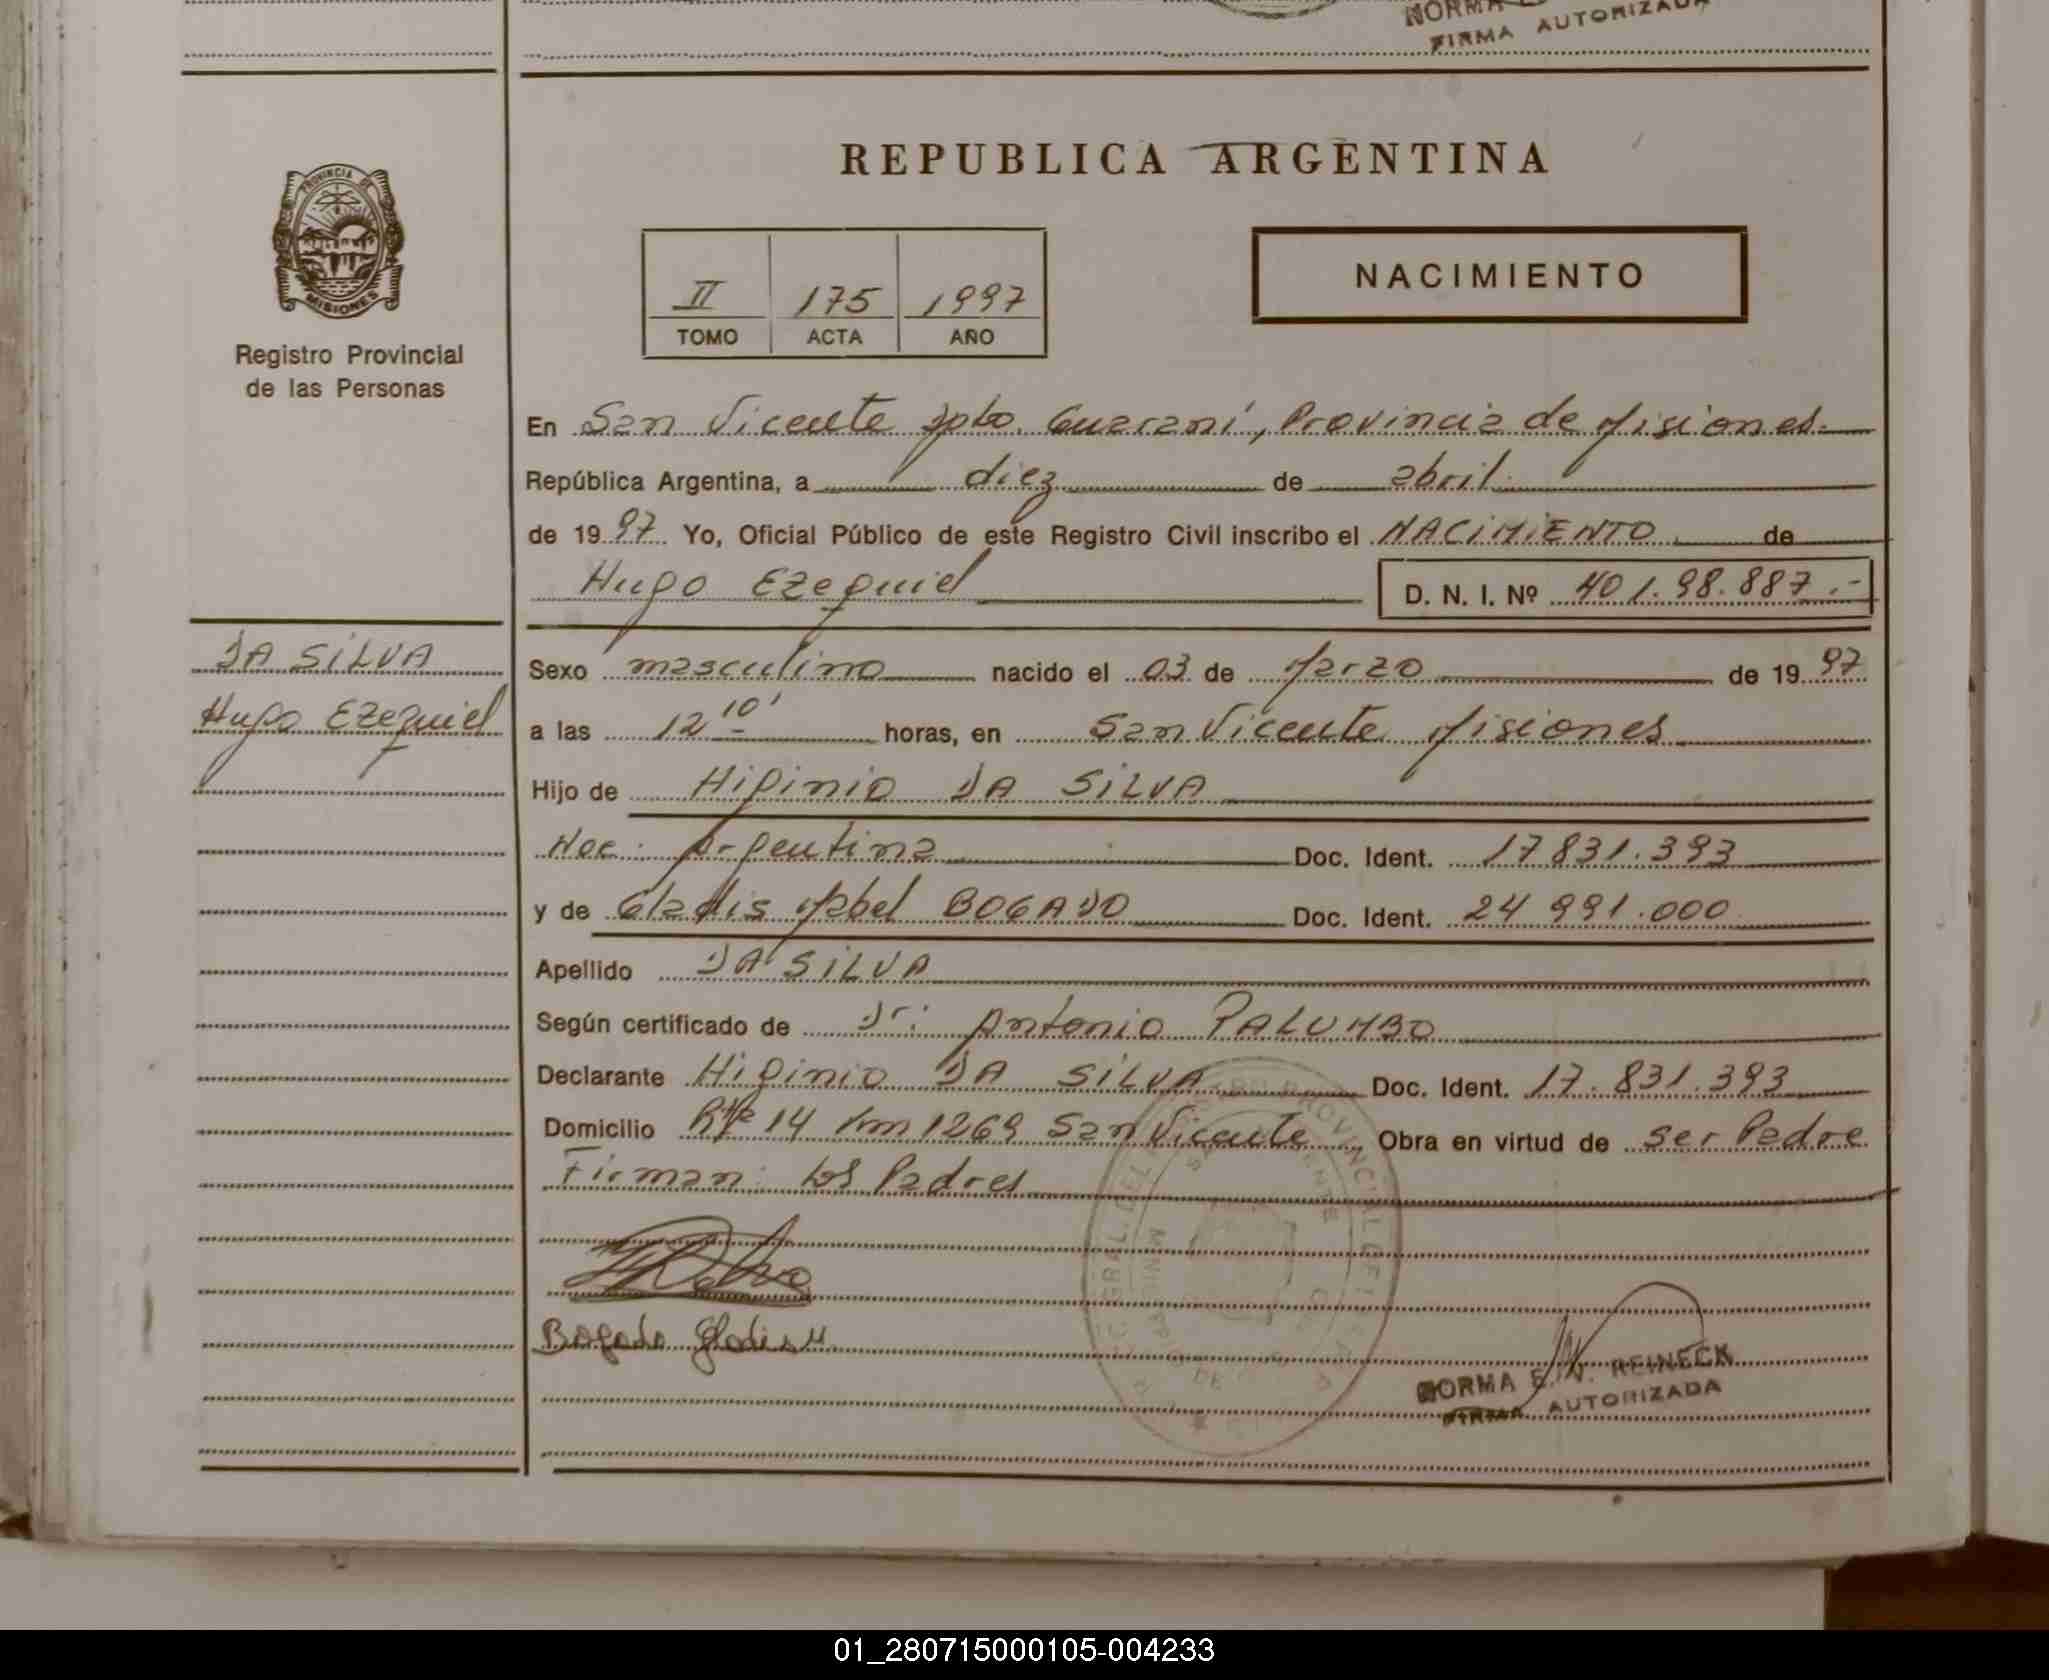 FIRMA AUTORIZADA
REPUBLICA ARGENTINA
PROVINCIA DE
MISIONES
Registro Provincial
de las Personas
II 175 1997
TOMO ACTA AÑO
NACIMIENTO
En San Vicente Dpto. Guaraní, Provincia de Misiones.
República Argentina, a diez de abril
de 1997 Yo, Oficial Público de este Registro Civil inscribo el NACIMIENTO de
Hugo Ezequiel D. N. I. Nº 401.98.887.-
DA SILVA
Hugo Ezequiel
Sexo masculino nacido el 03 de Marzo de 1997
a las 12 10' horas, en San Vicente Misiones
Hijo de Higinio DA SILVA
Nac. Argentina Doc. Ident. 17831.393
y de Gladis Mabel BOGADO Doc. Ident. 24 991.000
Apellido DA SILVA
Según certificado de Dr. Antonio PALUMBO
Declarante Higinio DA SILVA Doc. Ident. 17.831.393
Domicilio Rta 14 km 1269 San Vicente Obra en virtud de ser Padre
Firman: los Padres
Bogado Gladis M.
NORMA E. N. REINECK
FIRMA AUTORIZADA
01_280715000105-004233